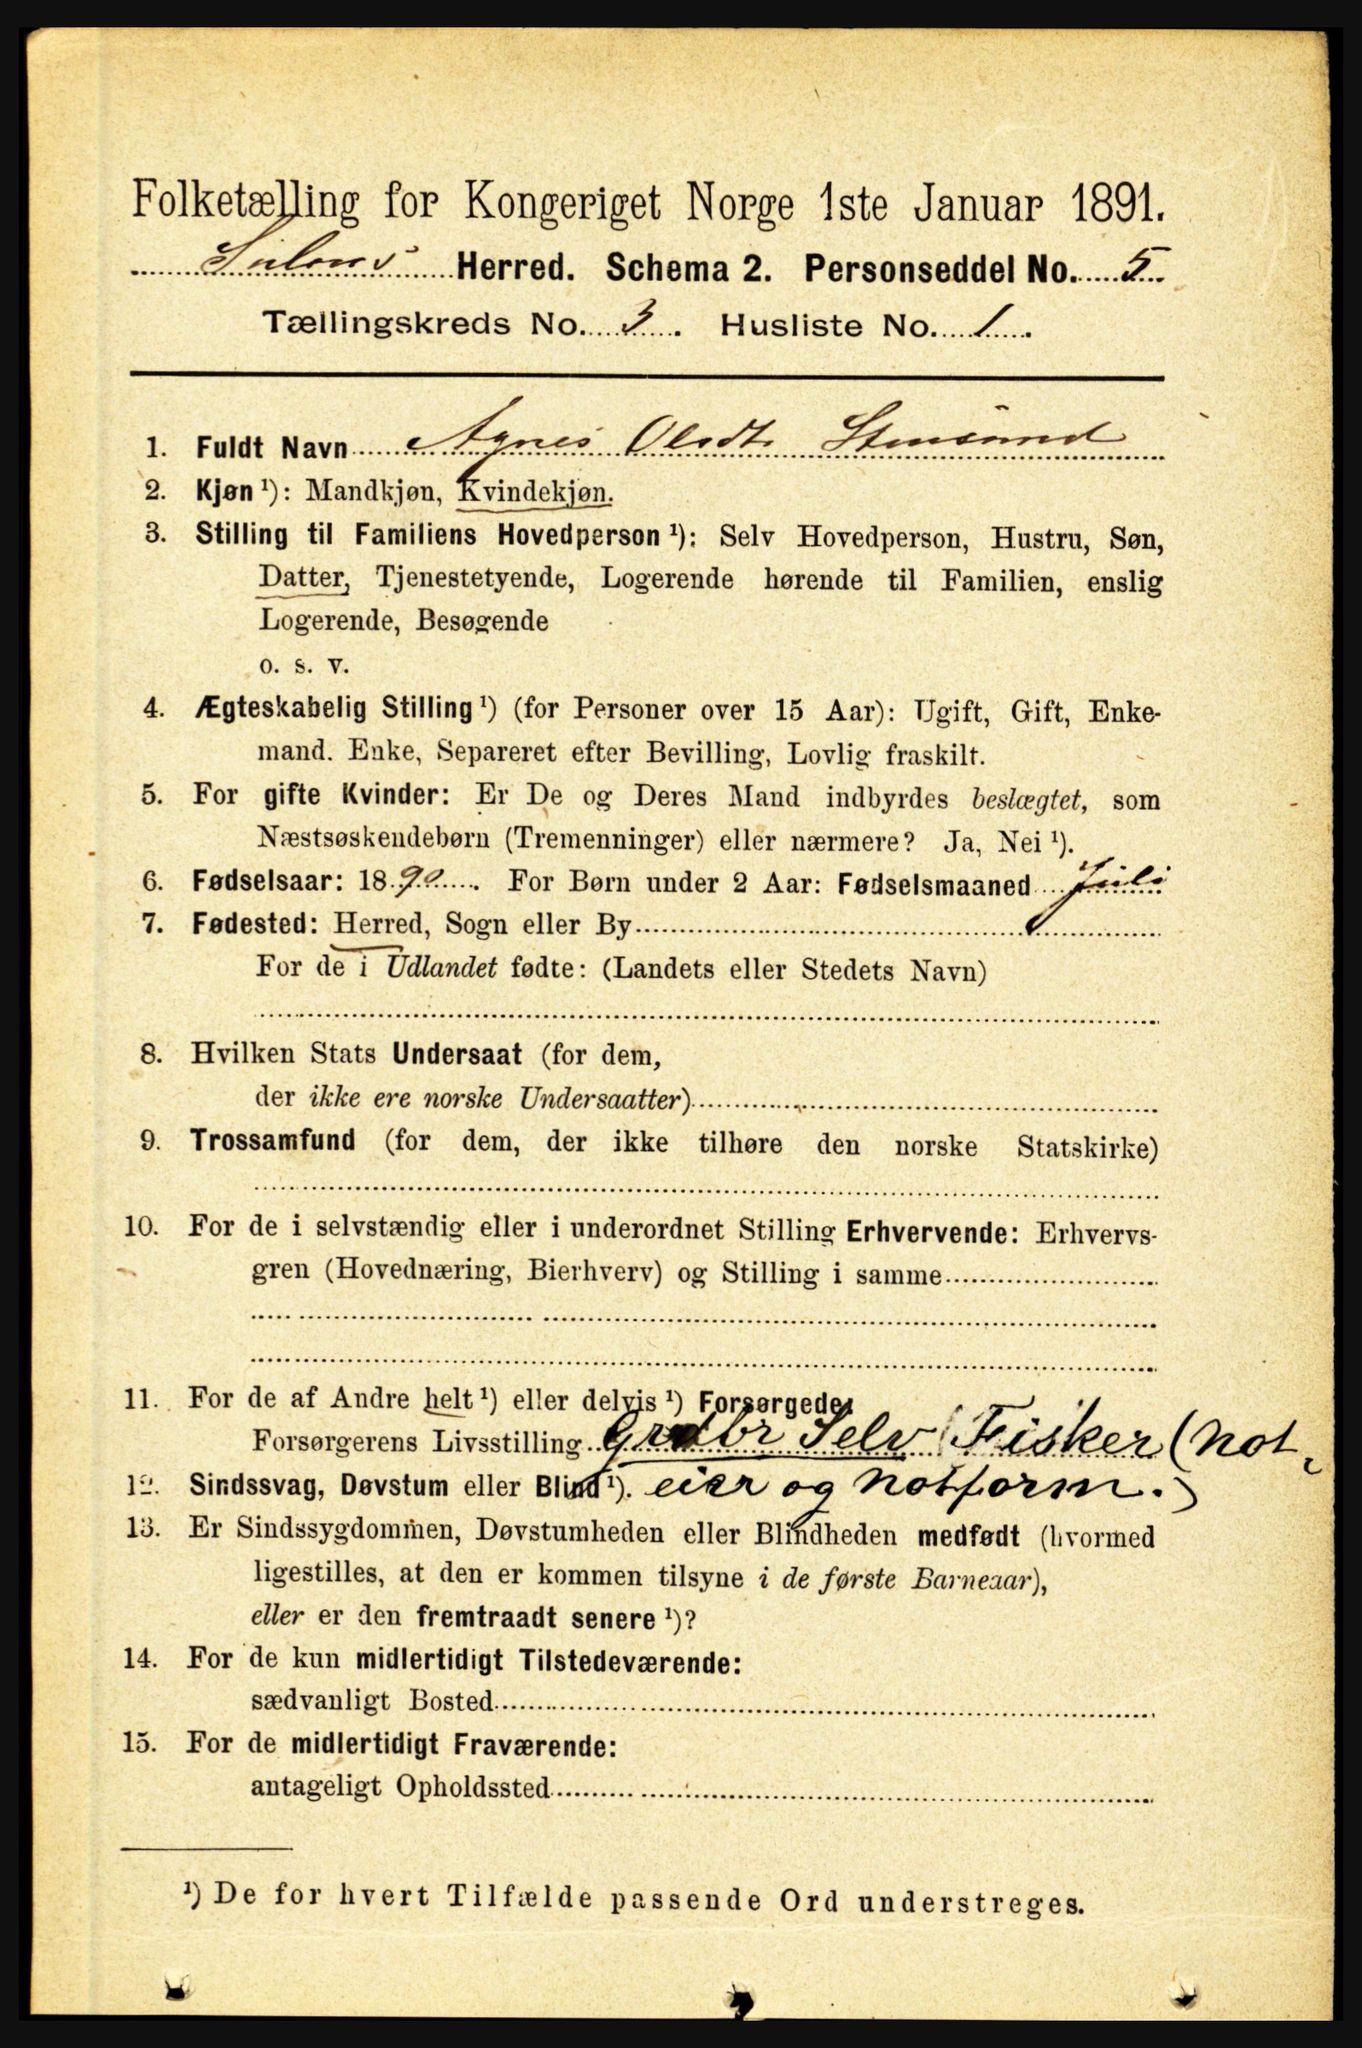 Folketælling for Kongeriget Norge 1ste Januar 1891.
Herred. Schema 2. Personseddel No. 5
Tællingskreds No. 3. Husliste No. 1.
1. Fuldt Navn Agnes Olsdt. Stensund
2. Kjøn ¹): Mandkjøn, Kvindekjøn.
3. Stilling til Familiens Hovedperson ¹): Selv Hovedperson, Hustru, Søn,
Datter, Tjenestetyende, Logerende hørende til Familien, enslig
Logerende, Besøgende
o. s. v.
4. Ægteskabelig Stilling ¹) (for Personer over 15 Aar): Ugift, Gift, Enke-
mand. Enke, Separeret efter Bevilling, Lovlig fraskilt.
5. For gifte Kvinder: Er De og Deres Mand indbyrdes beslægtet, som
Næstsøskendebørn (Tremenninger) eller nærmere? Ja, Nei ¹).
6. Fødselsaar: 1890. For Børn under 2 Aar: Fødselsmaaned Juli
7. Fødested: Herred, Sogn eller By
For de i Udlandet fødte: (Landets eller Stedets Navn)
8. Hvilken Stats Undersaat (for dem,
der ikke ere norske Undersaatter)
9. Trossamfund (for dem, der ikke tilhøre den norske Statskirke)
10. For de i selvstændig eller i underordnet Stilling Erhvervende: Erhvervs-
gren (Hovednæring, Bierhverv) og Stilling i samme
11. For de af Andre helt ¹) eller delvis ¹) Forsørgede:
Forsørgerens Livsstilling Grdbr Selv Fisker (not-
12. Sindssvag, Døvstum eller Blind ¹). eier og notform.)
13. Er Sindssygdommen, Døvstumheden eller Blindheden medfødt (hvormed
ligestilles, at den er kommen tilsyne i de første Barneaar),
eller er den fremtraadt senere ¹)?
14. For de kun midlertidigt Tilstedeværende:
sædvanligt Bosted
15. For de midlertidigt Fraværende:
antageligt Opholdssted
¹) De for hvert Tilfælde passende Ord understreges.